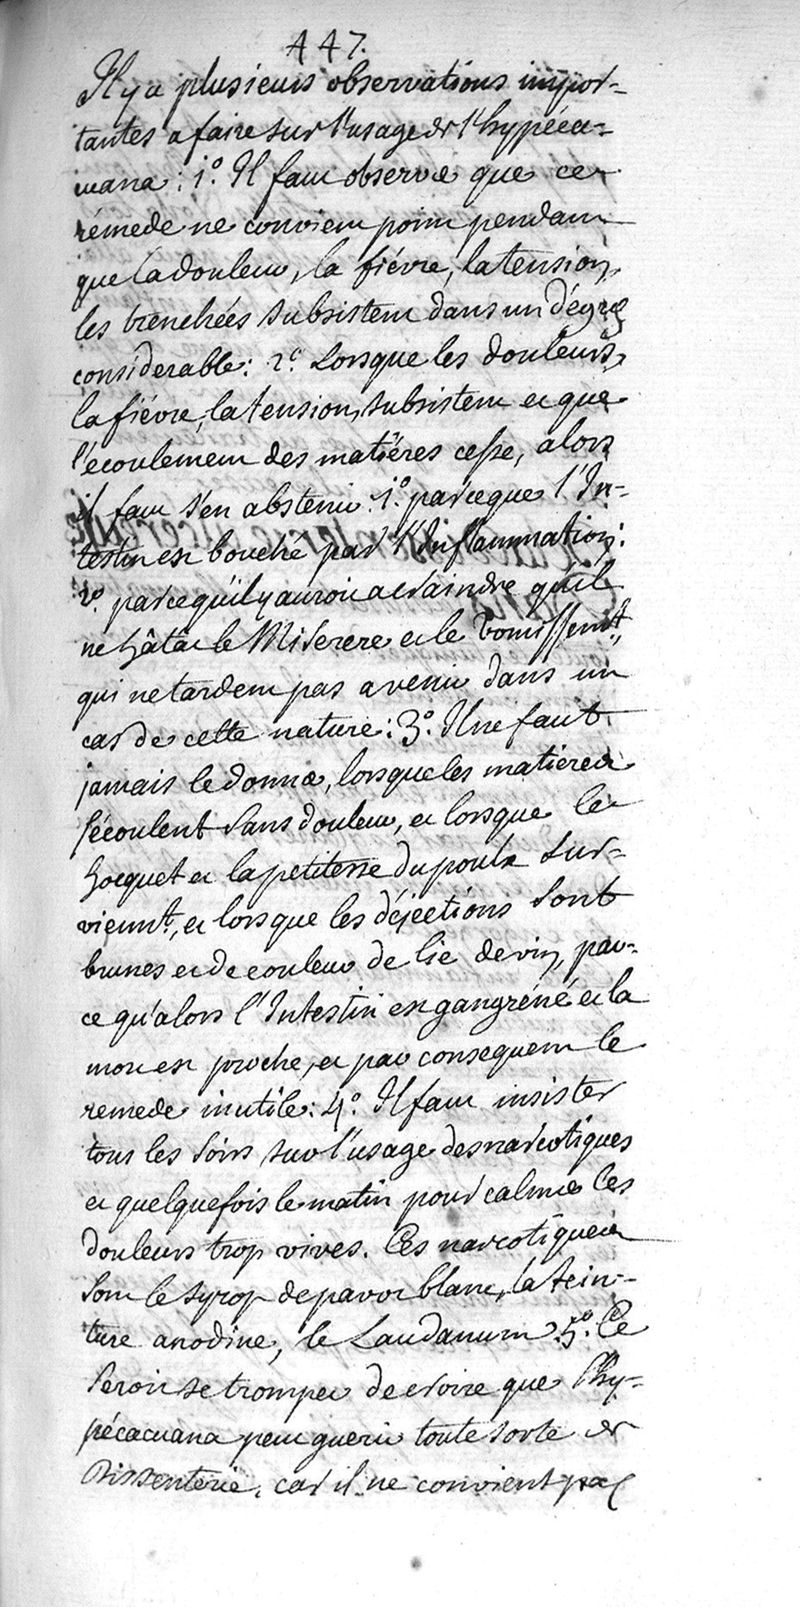 447.
Il y a plusieurs observations impor-
tantes a faire sur l'usage de l'hypéca-
cuana : 1.° Il faut observer que ce
rémede ne convient point pendant
que la douleur, la fiévre, la tension,
les trenchées subsistent dans un dégré
considerable : 2.° Lorsque les douleurs,
la fiévre, la tension, subsistent et que
l'écoulement des matiéres cesse, alors
il faut s'en abstenir. 1.° parceque l'In-
testin est bouché par l'Inflammation :
2.° parcequ'il y auroit a craindre qu'il
ne hâtât le Miserere et le Vomissemt.,
qui ne tardent pas a venir dans un
cas de cette nature : 3.° Il ne faut
jamais le donner, lorsque les matieres
s'écoulent sans douleur, et lorsque le
hocquet et la petitesse du poulx sur-
viennt., et lorsque les déjections sont
brunes et de couleur de lie de vin, par-
ce qu'alors l'Intestin est gangréné et la
mort est proche, et par consequent le
remede inutile : 4.° Il faut insister
tous les soirs sur l'usage des narcotiques
et quelquefois le matin pour calmer les
douleurs trop vives. Ces narcotiques
sont le syrop de pavot blanc, la tein-
ture anodine, le Laudanum. 5.° Ce
seroit se tromper de croire que l'hy-
pécacuana peut guerir toute sorte de
Dissenterie, car il ne convient pas